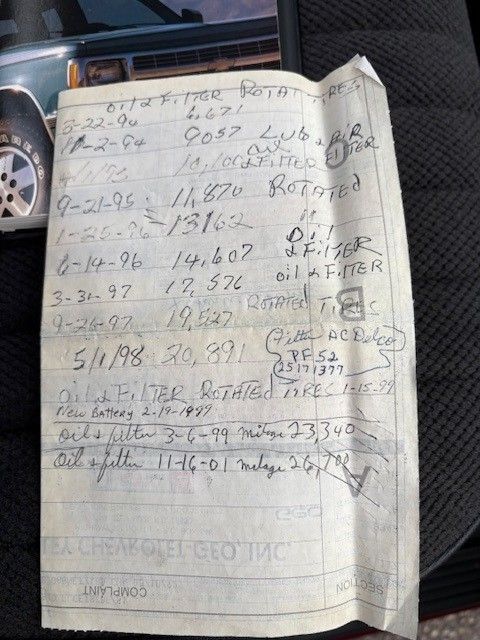 oil & FilTER ROTATE TIRES
3-22-94 6,671
11-2-94 9057 LUB & AIR FILTER
4/1/95 10,100 oil & FilTER
9-21-95 11,870 ROTATED
1-25-96 13162 "
6-14-96 14,607 Oil & FilTER
3-31-97 17,576 oil & FilTER
9-26-97 19,527 ROTATED TIRES
5/1/98 20,891 Filter AC Delco
PF52
25171377
oil & FilTER ROTATED TIRES 1-15-99
New Battery 2-19-1999
oil & filter 3-6-99 milage 23,340
Oil & filter 11-16-01 milage 26,700
A
B
C
GEO
LEY CHEVROLET GEO, INC.
COMPLAINT
SECTION